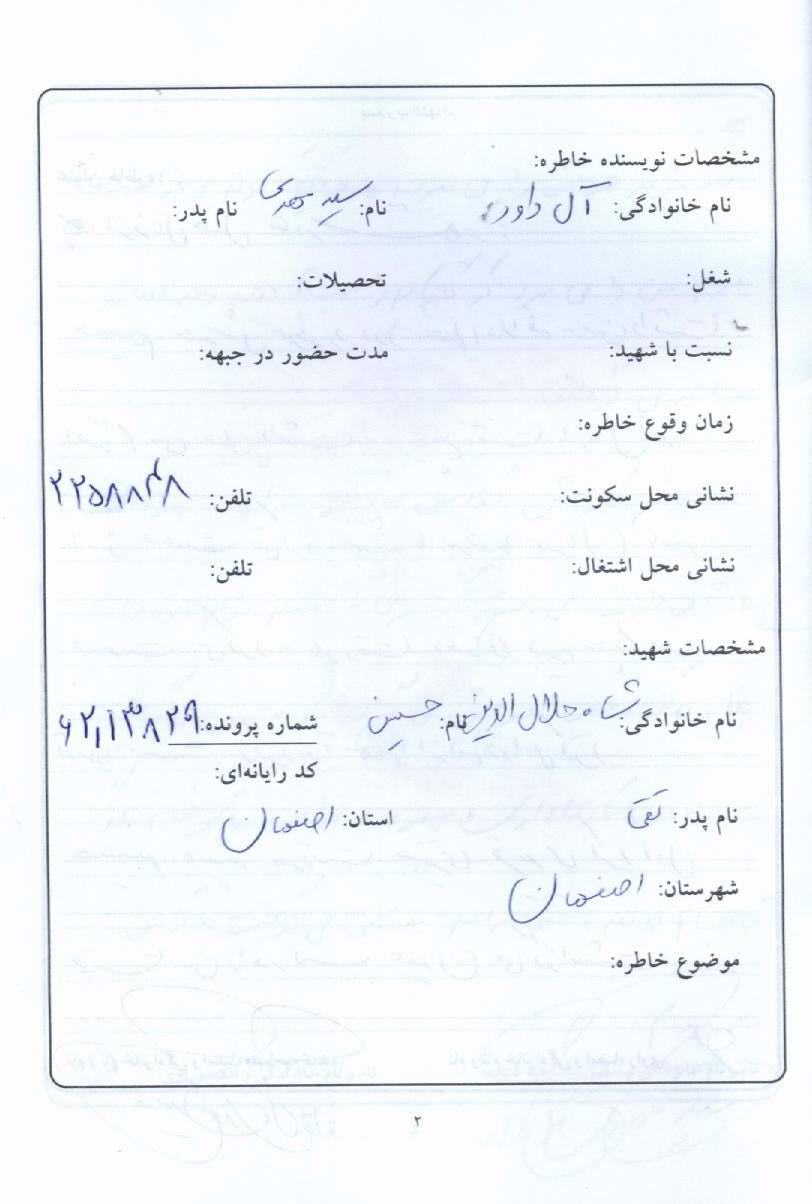 مشخصات نویسنده خاطره:
نام خانوادگی: آل داور نام: سید مهدی نام پدر:
شغل: تحصیلات:
نسبت با شهید: مدت حضور در جبهه:
زمان وقوع خاطره:
نشانی محل سکونت: تلفن: ۲۲۵۸۸۴۸
نشانی محل اشتغال: تلفن:
مشخصات شهید:
نام خانوادگی: شاه جلال الدین نام: حسین شماره پرونده:
کد رایانه‌ای:
نام پدر: تقی استان: اصفهان
شهرستان: اصفهان
موضوع خاطره:
۲